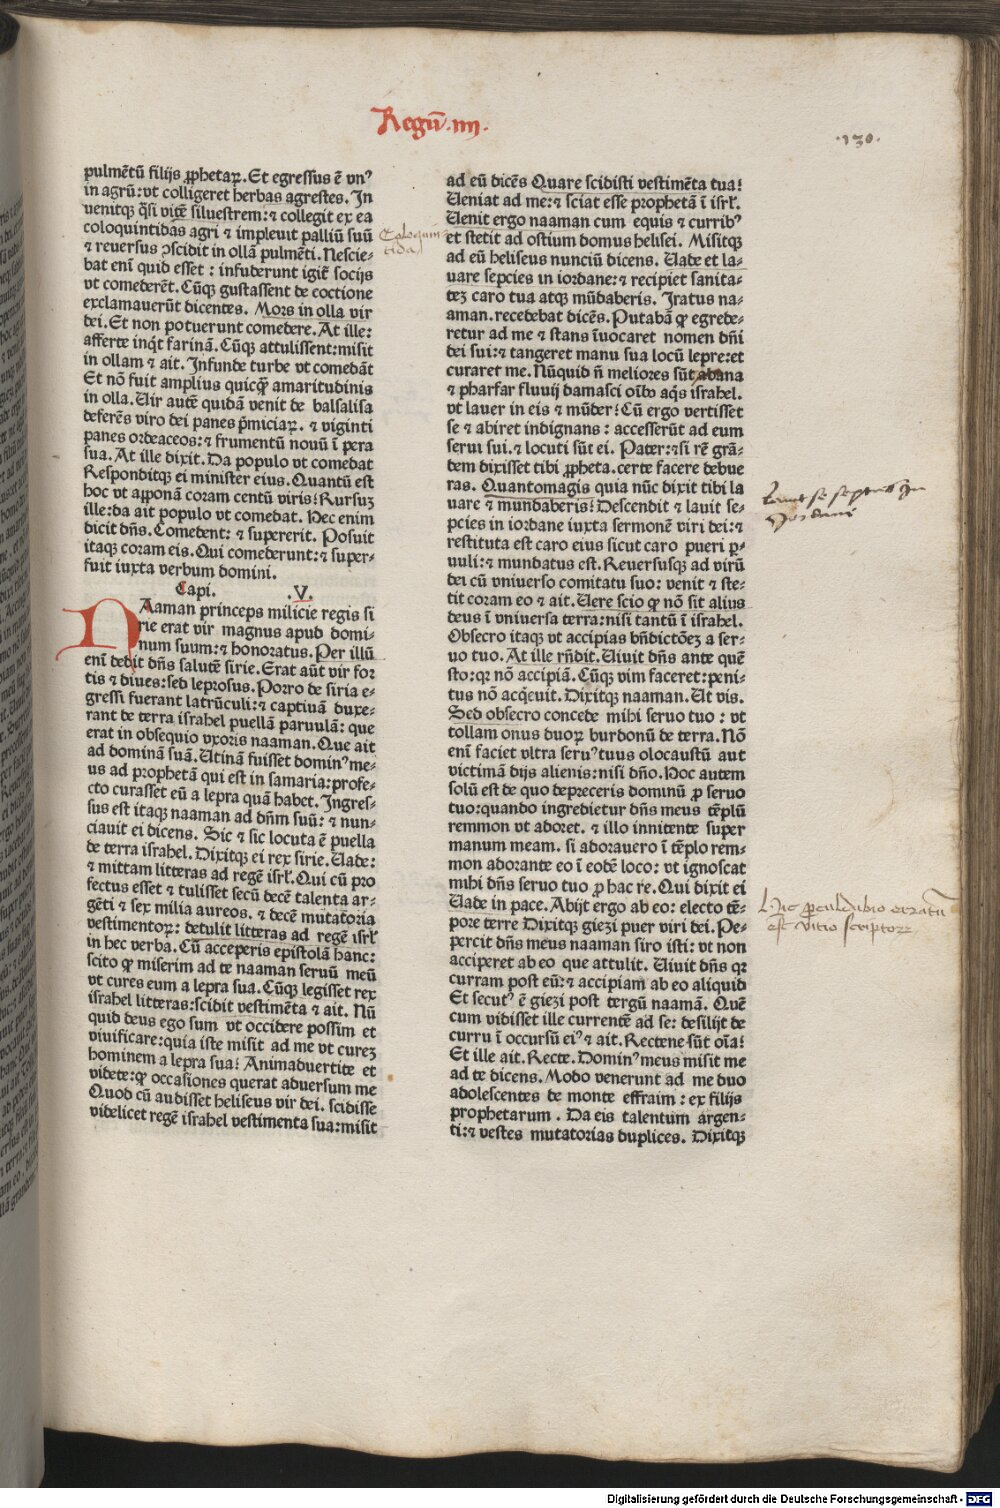 Regū .iiij.
.130.
pulmētū filijs ꝓphetaꝝ. Et egressus ē vnꝰ
in agrū: vt colligeret herbas agrestes. In
uenitqꝫ q̄si vitē siluestrem: ⁊ collegit ex ea
coloquintidas agri ⁊ impleuit palliū suū
⁊ reuersus ꝯscidit in ollā pulmēti. Nescie-
bat enī quid esset: infuderunt igit᷑ socijs
vt comederēt. Cūqꝫ gustassent de coctione
exclamauerūt dicentes. Mors in olla vir
dei. Et non potuerunt comedere. At ille:
afferte inq̇t farinā. Cūqꝫ attulissent: misit
in ollam ⁊ ait. Infunde turbe vt comedāt
Et nō fuit amplius quicꝙ̄ amaritudinis
in olla. Uir autē quidā venit de balsalisa
deferēs viro dei panes p̄miciaꝝ. ⁊ viginti
panes ordeaceos: ⁊ frumentū nouū ī pera
sua. At ille dixit. Da populo vt comedat
Responditqꝫ ei minister eius. Quantū est
hoc vt apponā coram centū viris? Rursuꝫ
ille: da ait populo vt comedat. Hec enim
dicit dn̄s. Comedent: ⁊ supererit. Posuit
itaqꝫ coram eis. Qui comederunt: ⁊ super-
fuit iuxta verbum domini.
Capi. .V.
NAaman princeps milicie regis si
rie erat vir magnus apud domi-
num suum: ⁊ honoratus. Per illū
enī dedit dn̄s salutē sirie. Erat aūt vir for
tis ⁊ diues: sed leprosus. Porro de siria e-
gressi fuerant latrūculi: ⁊ captiuā duxe-
rant de terra israhel puellā paruulā: que
erat in obsequio vxoris naaman. Que ait
ad dominā suā. Utinā fuisset dominꝰ me-
us ad prophetā qui est in samaria: profe-
cto curasset eū a lepra quā habet. Ingres-
sus est itaqꝫ naaman ad dn̄m suū: ⁊ nun-
ciauit ei dicens. Sic ⁊ sic locuta ē puella
de terra israhel. Dixitqꝫ ei rex sirie. Uade:
⁊ mittam litteras ad regē isrl̄. Qui cū pro
fectus esset ⁊ tulisset secū decē talenta ar-
gēti ⁊ sex milia aureos. ⁊ decē mutatoria
vestimentoꝝ: detulit litteras ad regē isrl̄
in hec verba. Cū acceperis epistolā hanc:
scito ꝙ miserim ad te naaman seruū meū
vt cures eum a lepra sua. Cūqꝫ legisset rex
israhel litteras: scidit vestimēta ⁊ ait. Nū
quid deus ego sum vt occidere possim et
viuificare: quia iste misit ad me vt cureꝫ
hominem a lepra sua? Animaduertite et
videte: ꝙ occasiones querat aduersum me
Quod cū audisset heliseus vir dei. scidisse
videlicet regē israhel vestimenta sua: misit
Coloquin
tida
ad eū dicēs Quare scidisti vestimēta tua?
Ueniat ad me: ⁊ sciat esse prophetā ī isrl̄.
Uenit ergo naaman cum equis ⁊ curribꝰ
et stetit ad ostium domus helisei. Misitqꝫ
ad eū heliseus nunciū dicens. Uade et la-
uare sepcies in iordane: ⁊ recipiet sanita-
teꝫ caro tua atqꝫ mūdaberis. Iratus na-
aman. recedebat dicēs. Putabā ꝙ egrede-
retur ad me ⁊ stans īuocaret nomen dn̄i
dei sui: ⁊ tangeret manu sua locū lepre: et
curaret me. Nūquid n̄ meliores sūt abana
⁊ pharfar fluuij damasci oībꝰ aq̄s israhel.
vt lauer in eis ⁊ mūder? Cū ergo vertisset
se ⁊ abiret indignans: accesserūt ad eum
serui sui. ⁊ locuti sūt ei. Pater: ⁊ si rē grā-
dem dixisset tibi ꝓpheta. certe facere debue
ras. Quantomagis quia nūc dixit tibi la
uare ⁊ mundaberis? Descendit ⁊ lauit se-
pcies in iordane iuxta sermonē viri dei: ⁊
restituta est caro eius sicut caro pueri ꝑ-
uuli: ⁊ mundatus est. Reuersusqꝫ ad virū
dei cū vniuerso comitatu suo: venit ⁊ ste-
tit coram eo ⁊ ait. Uere scio ꝙ nō sit alius
deus ī vniuersa terra: nisi tantū ī israhel.
Obsecro itaqꝫ vt accipias bn̄dictōeꝫ a ser-
uo tuo. At ille rn̄dit. Uiuit dn̄s ante quē
sto: qꝛ nō accipiā. Cūqꝫ vim faceret: peni-
tus nō acq̇euit. Dixitqꝫ naaman. Ut vis.
Sed obsecro concede mihi seruo tuo: vt
tollam onus duoꝝ burdonū de terra. Nō
enī faciet vltra seruꝰ tuus olocaustū aut
victimā dijs alienis: nisi dn̄o. Hoc autem
solū est de quo depreceris dominū ꝓ seruo
tuo: quando ingredietur dn̄s meus tēplū
remmon vt adoret. ⁊ illo innitente super
manum meam. si adorauero ī tēplo rem-
mon adorante eo ī eodē loco: vt ignoscat
mihi dn̄s seruo tuo ꝓ hac re. Qui dixit ei
Uade in pace. Abijt ergo ab eo: electo tē-
pore terre Dixitqꝫ giezi puer viri dei. Pe-
percit dn̄s meus naaman siro isti: vt non
acciperet ab eo que attulit. Uiuit dn̄s qꝛ
curram post eū: ⁊ accipiam ab eo aliquid
Et secutꝰ ē giezi post tergū naamā. Quē
cum vidisset ille currentē ad se: desilijt de
curru ī occursū eiꝰ ⁊ ait. Rectene sūt oīa?
Et ille ait. Recte. Dominꝰ meus misit me
ad te dicens. Modo venerunt ad me duo
adolescentes de monte effraim: ex filijs
prophetarum. Da eis talentum argen-
ti: ⁊ vestes mutatorias duplices. Dixitqꝫ
Lauit se septies in
Jordane
Hic proculdubio erratū
est vitio scriptorꝭ
Digitalisierung gefördert durch die Deutsche Forschungsgemeinschaft - DFG